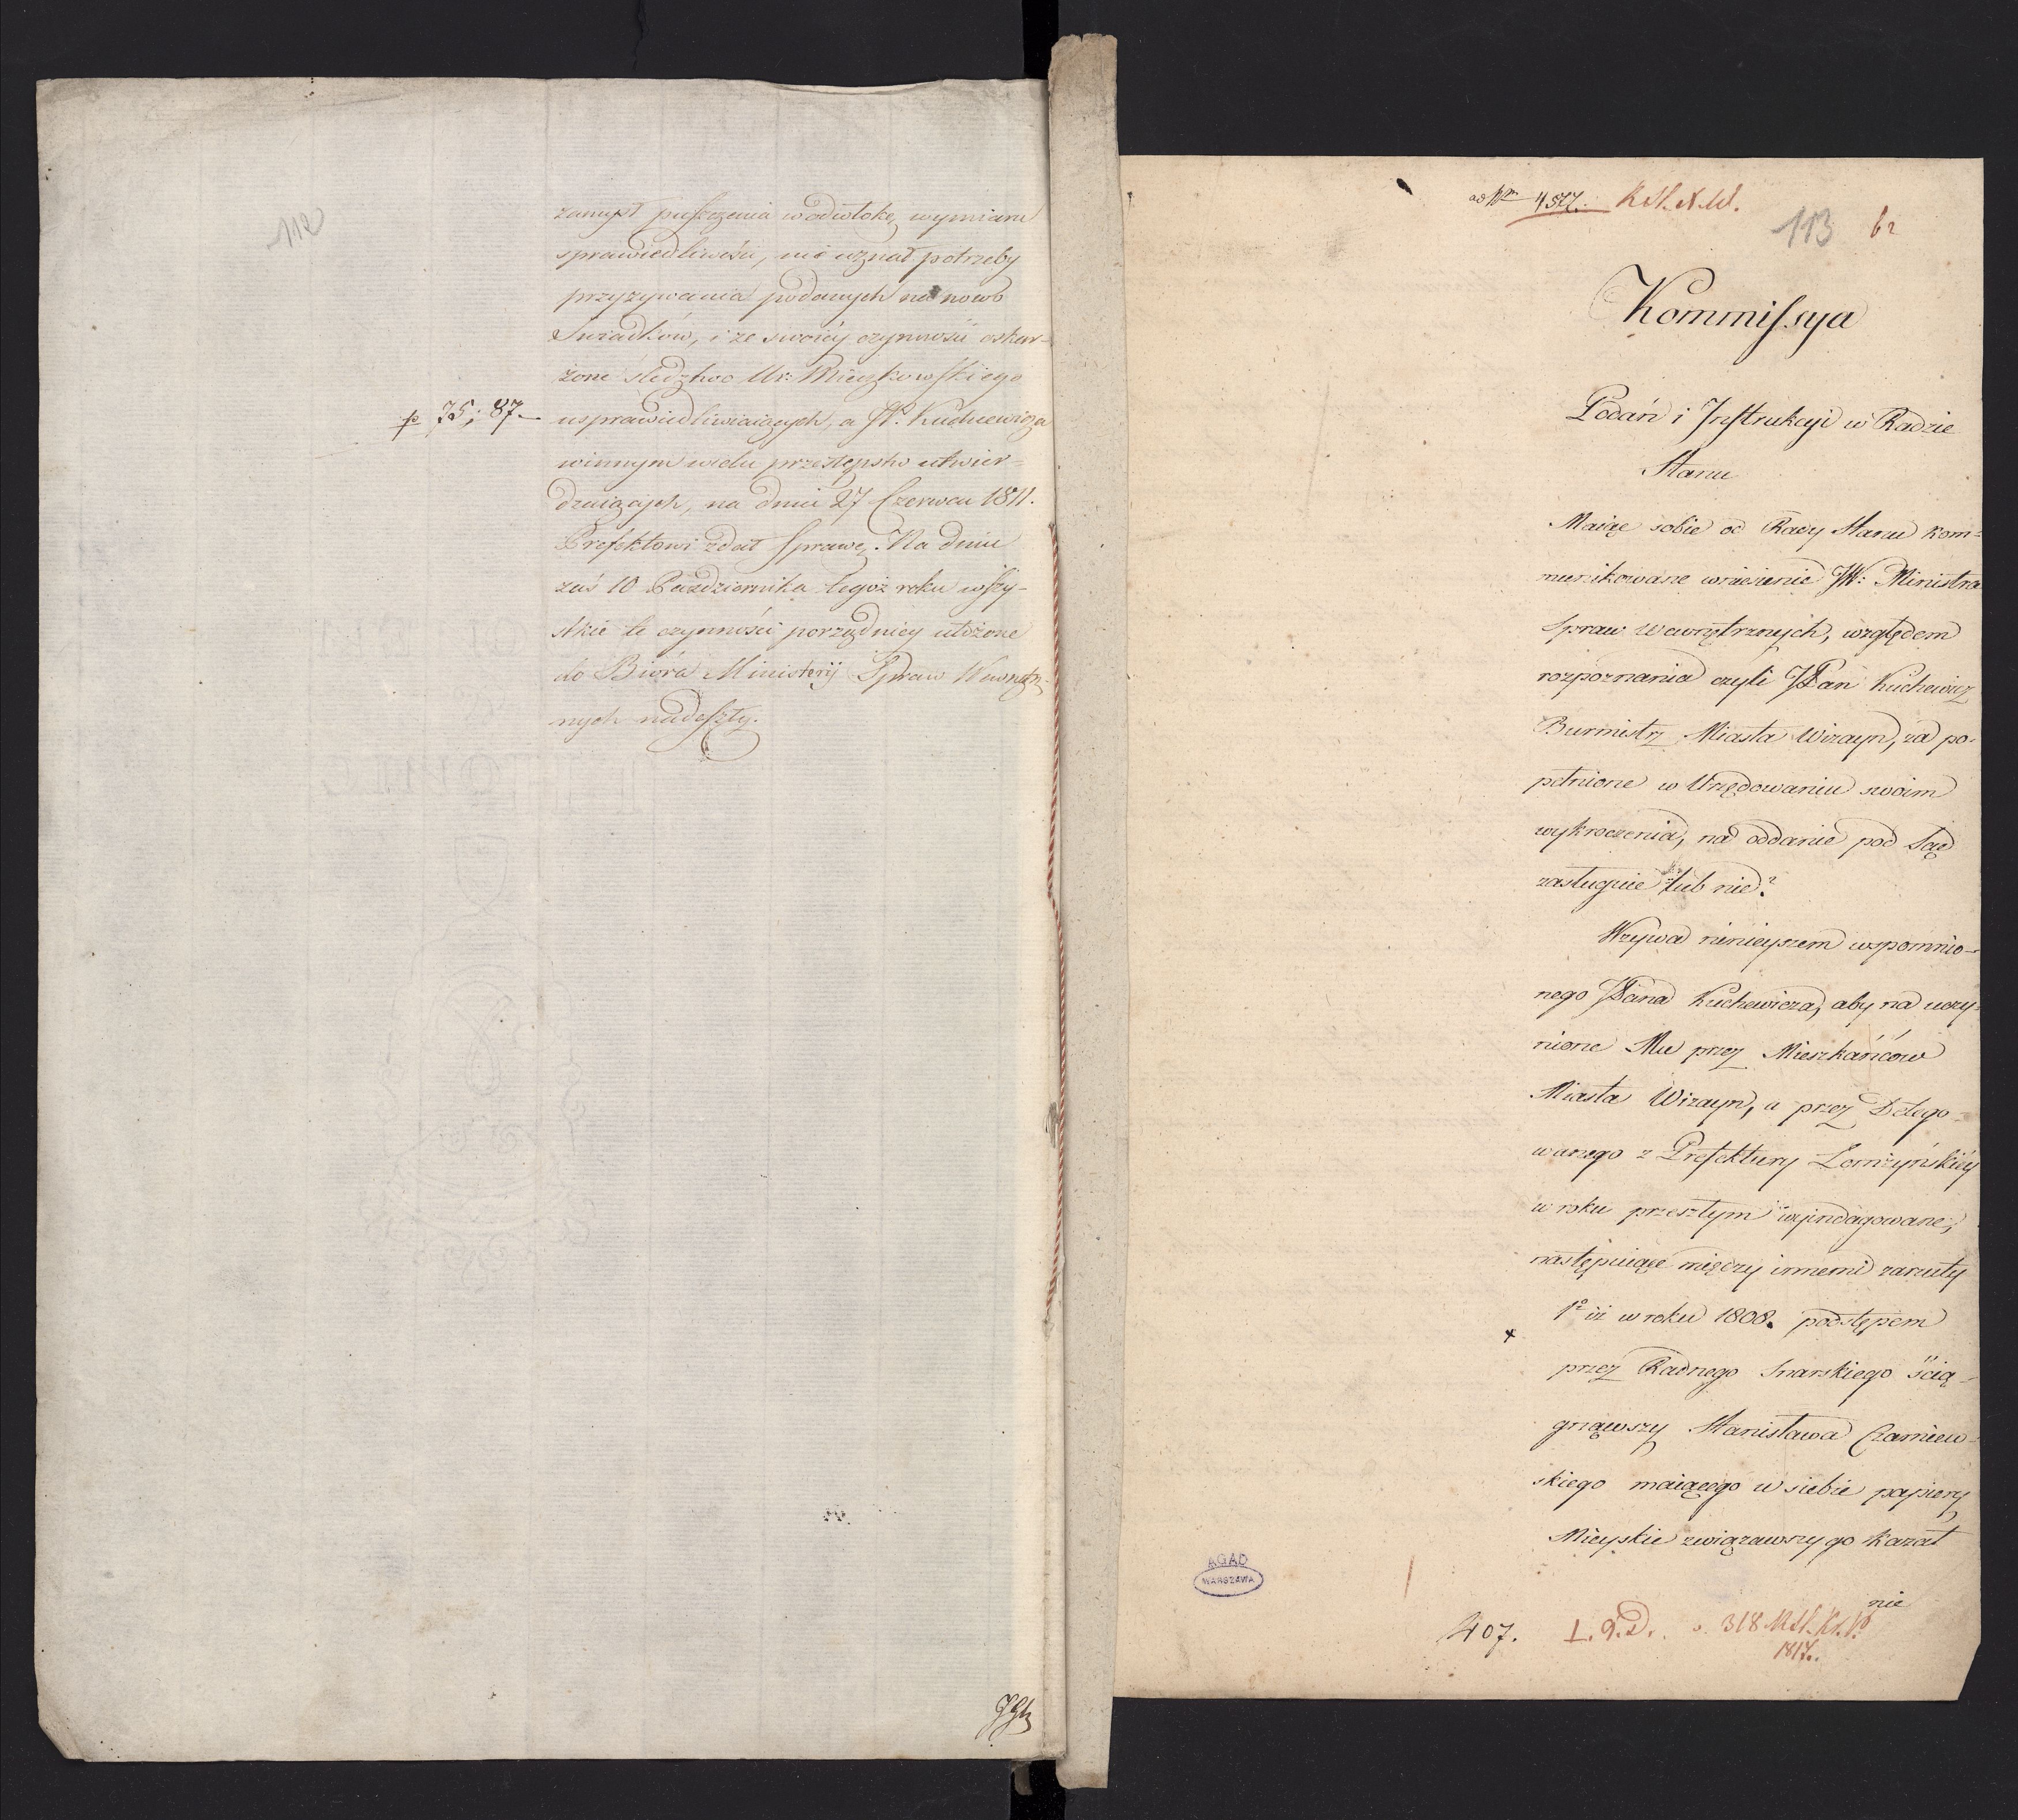 112
zamysł puszczenia w odwłokę wymiaru
sprawiedliwości, nie uznał potrzeby
przyzywania podanych na nowo
Świadków, i ze swoiéy czynności oskar-
żone śledztwo Ur: Mieczkowskiego
p 75; 87.— usprawiedliwiaiących, a JP. Kuchewicza
winnym wielu przestępstw utwier=
dzaiących, na dniu 27 Czerwca 1811.
Prefektowi zdał sprawę. Na dniu
zaś 10 Października tegoż roku wszy-
stkie te czynności porządniey ułożone
do Bióra Ministerij Spraw Wewnętrz-
nych nadeszły.
ad Nrm 4577. R.St.X.W.
113 62
Kommissya
Podań i Instrukcyi w Radzie
Stanu
Maiąc sobie od Rady Stanu kom=
munikowane wniesienie JW: Ministra
Spraw Wewnętrznych, względem
rozpoznania czyli JPan Kuchewicz
Burmistrz Miasta Wizayn, za po-
pełnione w Urzędowaniu swoim
wykroczenia, na oddanie pod Sąd
zasługuie lub nie?
Wzywa ninieyszem wspomnio-
nego JPana Kuchewicza, aby na uczy-
nione Mu przez Mieszkańców
Miasta Wizayn, a przez Delego-
wanego z Prefektury Łomżyńskiéy
w roku przeszłym wyindagowane,
następuiące między innemi zarzuty
1º iż w roku 1808. podstępem
przez Radnego Snarskiego ścią-
gnąwszy Stanisława Czarniew-
skiego maiącego u siebie papiery
Mieyskie związawszy go kazał
nie
AGAD
WARSZAWA
407. L.9.D. 318 R.St.Kr.P.
1817.